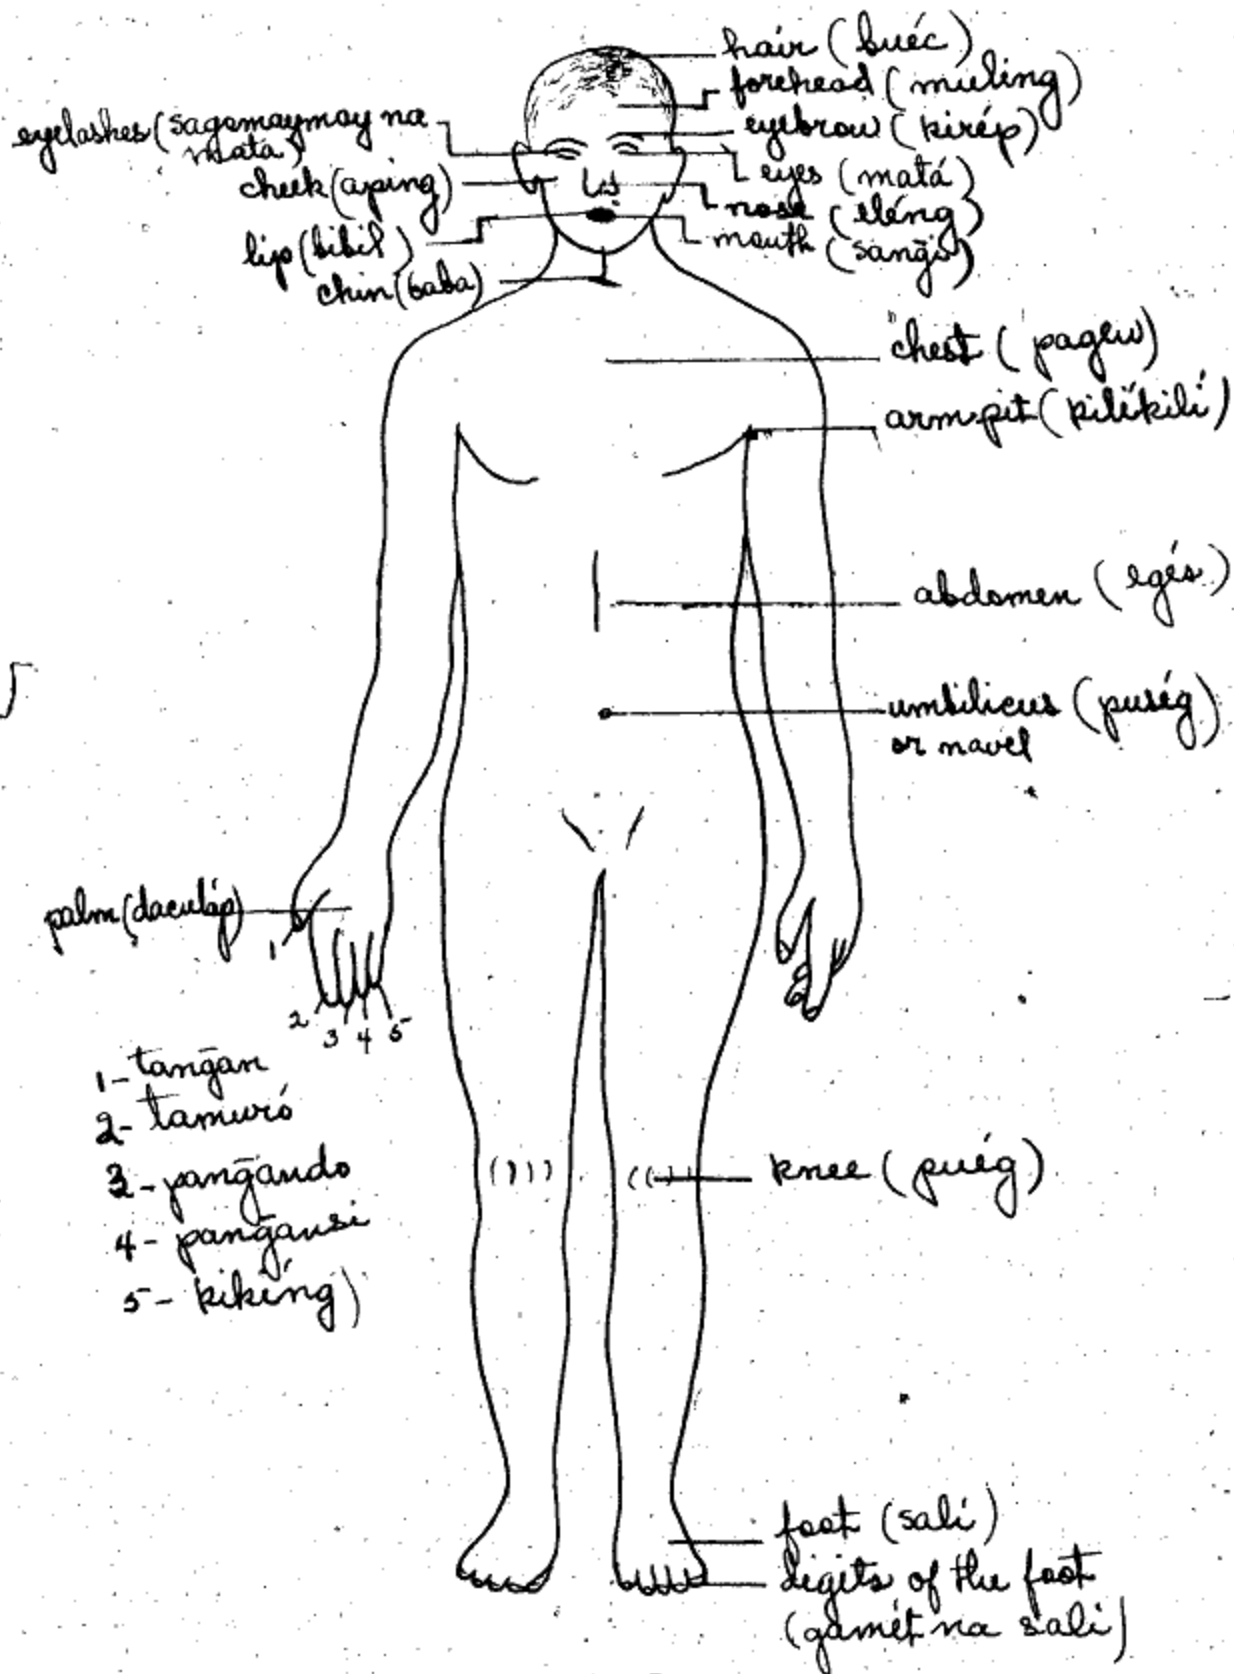 hair (buéc)
forehead (muling)
eyebrow (kirép)
eyes (matá)
nose (eléng)
mouth (sangì)
eyelashes (sagomaymay na
matá)
cheek (aping)
lip (bibil)
chin (baba)
chest (pagew)
arm-pit (kilikili)
abdomen (egés)
umbilicus (puség)
or navel
palm (daculáp)
1
2 3 4 5
1- tangan
2- tamuró
3- pangando
4- pangansi
5- kikíng)
knee (puég)
foot (salí)
digits of the foot
(gamét na salí)